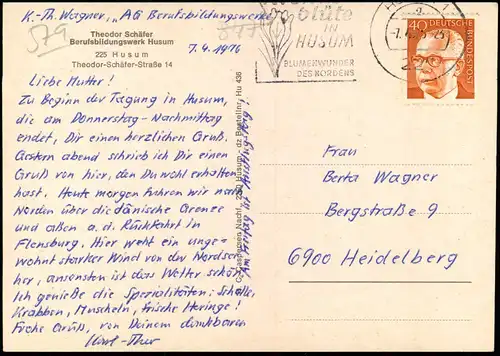 K.-Th. Wagner, "AG Berufsbildungswerke"
579
Theodor Schäfer
Berufsbildungswerk Husum
225 Husum
Theodor-Schäfer-Straße 14
7.4.1976
Liebe Mutter!
Zu Beginn der Tagung in Husum,
die am Donnerstag-Nachmittag
endet, Dir einen herzlichen Gruß.
Gestern abend schrieb ich Dir einen
Gruß von hier, den Du wohl erhalten
hast. Heute morgen fuhren wir nach
Norden über die dänische Grenze
und aßen a. d. Rückfahrt in
Flensburg. Hier weht ein unge-
wohnt starker Wind von der Nordsee
her, ansonsten ist das Wetter schön.
Ich genieße die Spezialitäten: Schollen,
Krabben, Muscheln, frische Heringe!
Frohe Grüße, von Deinem dankbaren
Karl-Theo
Am Freitag ist
Nachf. 225 Husum
Bestellnr. Hu 436
Blüte
IN
HUSUM
BLUMENWUNDER
DES NORDENS
40
DEUTSCHE BUNDESPOST
Frau
Berta Wagner
Bergstraße 9
6900 Heidelberg